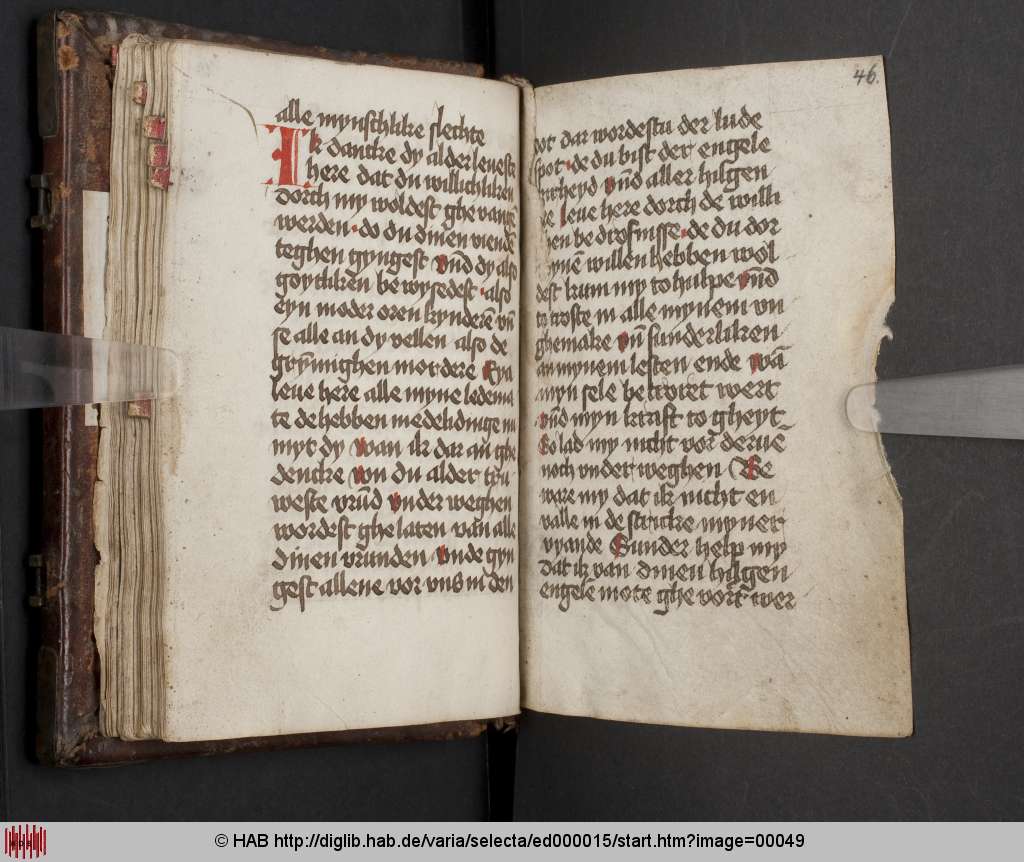 alle mynschlike slechte
Ik dancke dy alder leueste
here dat du willichliken
dorch my woldest ghe vange
werden · do du dinen viende
teghen gyngest vnd dy also
goytliken be wysedest · also
eyn moder oren kynderē vn̄
se alle an dy vellen also de
grȳmighen mordere Eya
leue here alle myne ledema
te de hebben medelidinge
myt dy wan ik dar an ghe
dencke von du alder tru
weste vrūd vnder weghen
wordest ghe laten van alle
dinen vrunden vnde gyn
gest allene vor vns in den
46.
dot dar wordestu der lude
spot · de du bist der engele
vnd aller hilgen
leue here dorch de willi
be drofnisse · de du dor
willen hebben wol
dest kum my to hulpe vn̄d
troste in alle mynem vn
ghemake vn̄ sunderliken
an mynem lesten ende wā
myn sele be rovet wert
vn̄d myn kraft to gheyt
So lad my nicht vor derue
noch vnder weghen Be
ware my dat ik nicht en
valle in de stricke myner
vyande Sunder help my
dat ik van dinen hilgen
engele mote ghe vort wer
© HAB http://diglib.hab.de/varia/selecta/ed000015/start.htm?image=00049